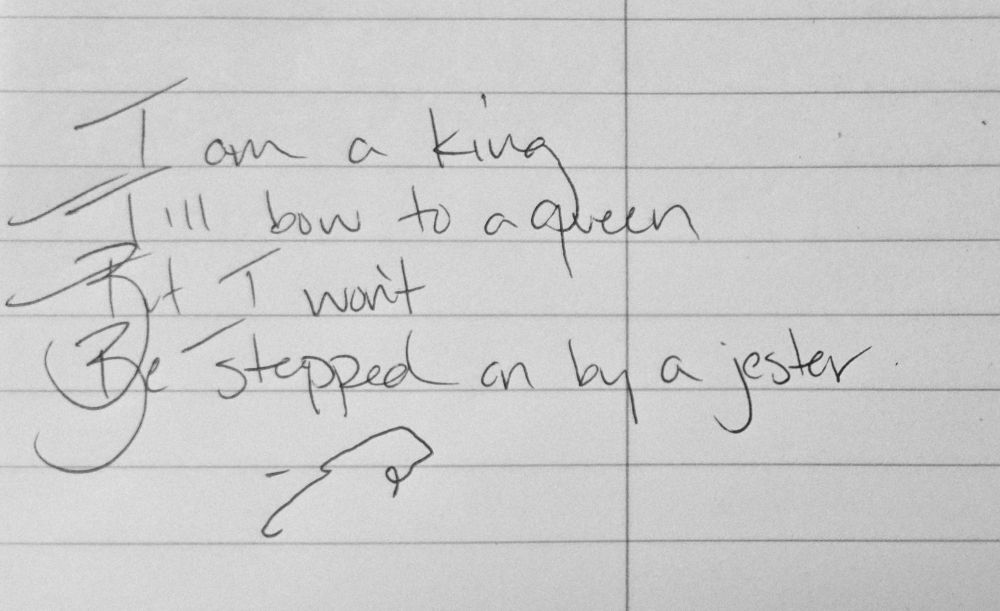 I am a king
I'll bow to a queen
But I won't
Be stepped on by a jester